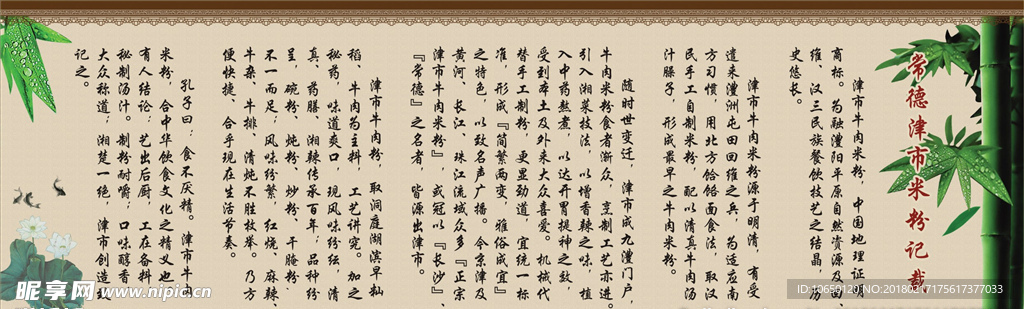 常德津市米粉记载
津市牛肉米粉，中国地理证明
商标。为融澧阳平原自然资源及回、
维、汉三民族餐饮技艺之结晶，历
史悠长。
津市牛肉米粉源于明清，有受
遣来澧洲屯田回维之兵，为适应南
方习惯，用北方饸饹面食法，取汉
民手工自制米粉，配以清真牛肉汤
汁臊子，形成最早之牛肉米粉。
随时世变迁，津市成九澧门户，
牛肉米粉食者渐众，烹制工艺亦进。
引入湘菜技法，以增香辣之味，植
入中药熬煮，以达开胃提神之效，
受到本土及外来大众喜爱。机械代
替手工制粉，更显劲道，宜统一标
准，形成『简繁两变，雅俗咸宜』
之特色，以致名声广播。今京津及
黄河、长江、珠江流域众多『正宗
津市牛肉米粉』，或冠以『长沙』、
『常德』之名者，皆源出津市。
津市牛肉粉，取洞庭湖滨早籼
稻，牛肉为主料，工艺讲究。加之
秘药，味道爽口，现风味纷纭，清
真、药膳、湘辣传承百年；品种纷
呈，碗粉、炖粉、炒粉、干腌粉，
不一而足；风味纷繁，红烧、麻辣、
牛杂、牛排、清炖不胜枚举。乃方
便快捷、合乎现在生活节奏。
孔子曰：食不厌精。津市牛肉
米粉，合中华饮食文化之精义也。
有人结论：艺出后厨，工在备料，
秘制汤汁。制粉耐嚼，口味醇香，
大众称道，湘楚一绝，津市创造。
记之。
昵享网 www.nipic.cn
ID:10659120 NO:20180217175617377033